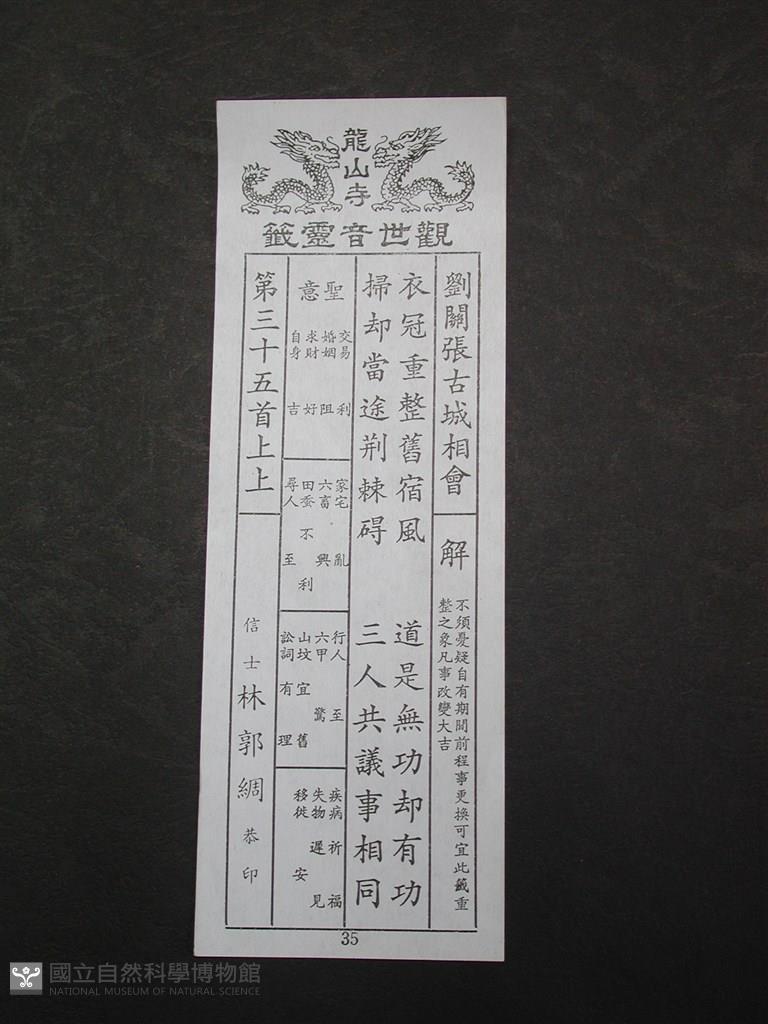 龍山寺
觀世音靈籤
劉關張古城相會
解
不須憂疑自有期間前程事更換可宜此籤重
整之象凡事改變大吉
衣冠重整舊宿風
道是無功却有功
掃却當途荆棘碍
三人共議事相同
聖意
交易 利
婚姻 阻
求財 好
自身 吉
家宅 亂
六畜 興
田蚕 不利
尋人 至
行人 至
六甲 驚
山坟 宜舊
訟詞 有理
疾病 祈福
失物 遲見
移徙 安
第三十五首上上
信士林郭綢恭印
35
國立自然科學博物館
NATIONAL MUSEUM OF NATURAL SCIENCE